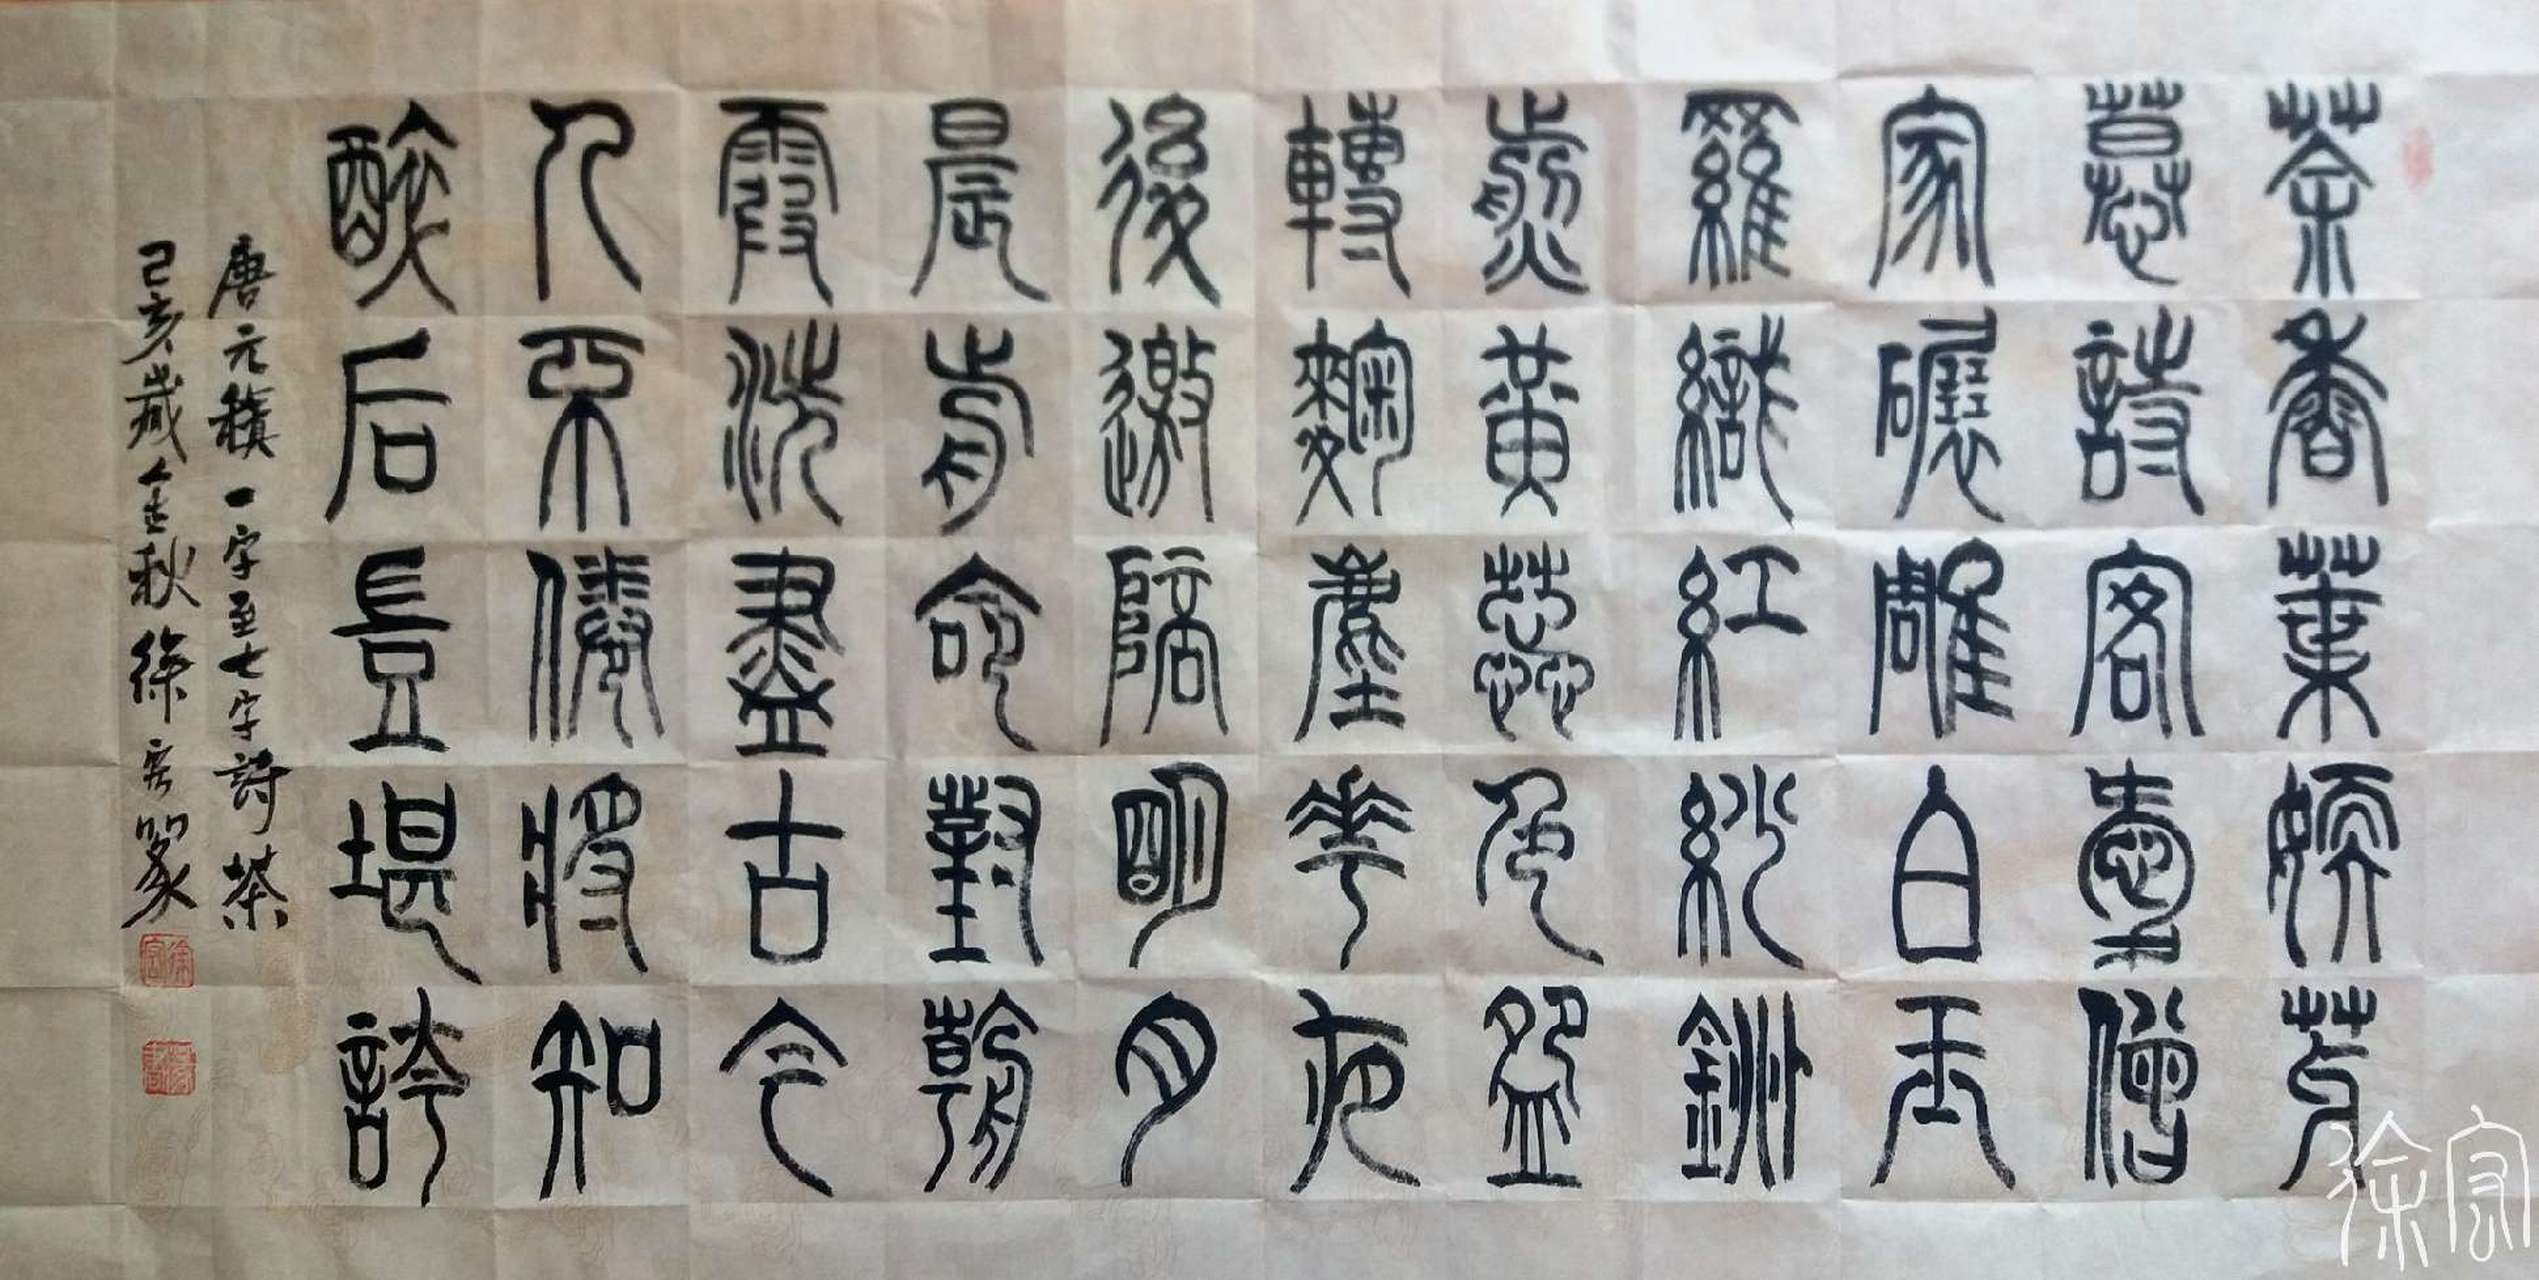 茶香葉嫩芽
慕詩客愛僧
家碾雕白玉
羅織紅紗銚
煎黃蕊色盌
轉麴塵花夜
後邀陪明月
晨前命對朝
霞洗盡古今
人不倦將知
醉后豈堪誇
唐元稹一字至七字詩茶
己亥歲金秋徐篆
徐